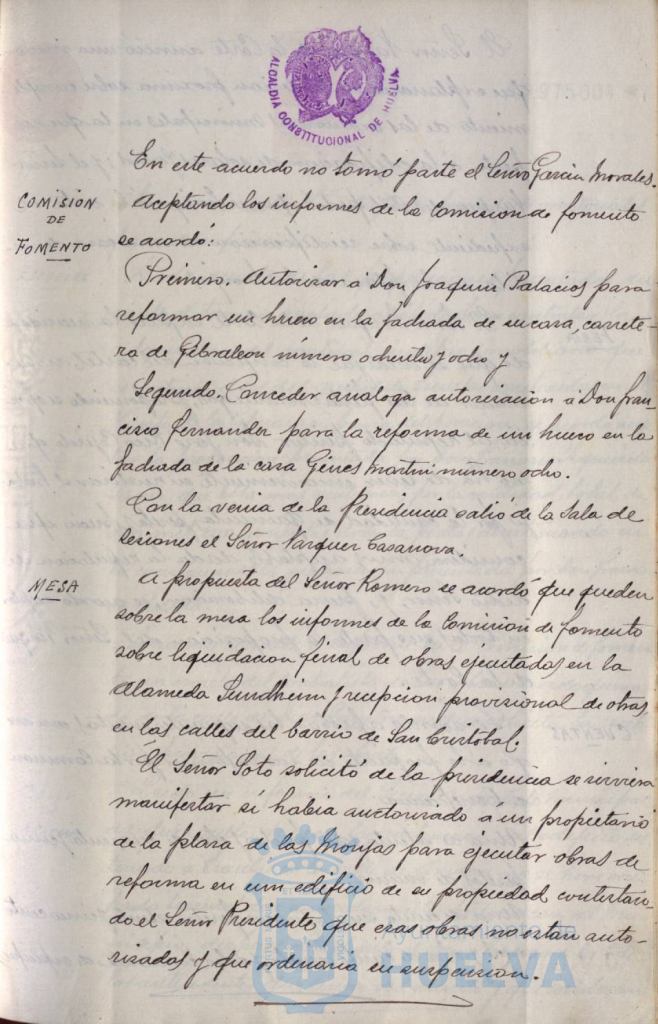 ALCALDIA CONSTITUCIONAL DE HUELVA
En este acuerdo no tomó parte el Señor Garcia Morales.
COMISION
DE
FOMENTO
Aceptando los informes de la Comision de fomento
se acordó:
Primero. Autorizar á Don Joaquin Palacios para
reformar un hueco en la fachada de su casa, carrete-
ra de Gibraleon número ochenta y ocho y
Segundo. Conceder analoga autorizacion á Don Fran-
cisco Fernandez para la reforma de un hueco en la
fachada de la casa Gines Martin número ocho.
Con la venia de la Presidencia salió de la Sala de
sesiones el Señor Vazquez Casanova.
MESA
A propuesta del Señor Romero se acordó que queden
sobre la mesa los informes de la Comision de fomento
sobre liquidacion final de obras ejecutadas en la
Alameda Sundheim y recepcion provisional de otras
en las calles del barrio de San Cristobal.
El Señor Soto solicitó de la presidencia se sirviera
manifestar si habia auctorizado á un propietario
de la plaza de las Monjas para ejecutar obras de
reforma en un edificio de su propiedad contestan-
do el Señor Presidente que esas obras no estan auto-
rizadas y que ordenaria su suspension.
Ayuntamiento de
HUELVA